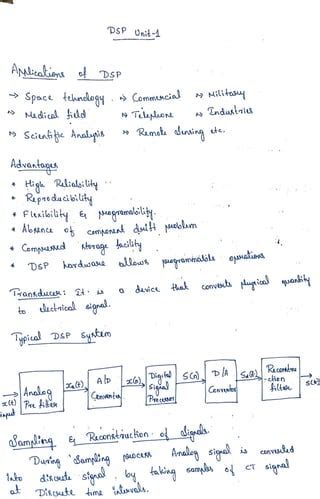 DSP Unit-1
Applications of DSP
→ Space tehnology → Commercial → Military
→ Medical field → Telephone → Industries
→ Scientific Analysis → Remote sensing etc.
Advantages
* High Reliability
* Reproducibility
* Flexibility & programability.
* Absence of component drift problem
* Compressed storage facility
* DSP hardware allows programmable operations
Transducer: It is a device that converts physical quantity
to electrical signal.
Typical DSP System
x(t)
input
Analog
Pre filter
xa(t)
A/D
Converter
x(n)
Digital
Signal
Processor
S(n)
D/A
Converter
Sa(t)
Reconstru
-ction
filter
s(t)
Sampling & Reconstruction of Signals
During Sampling process Analog signal is converted
into discrete signal by taking samples of CT signal
at Discrete time intervals.